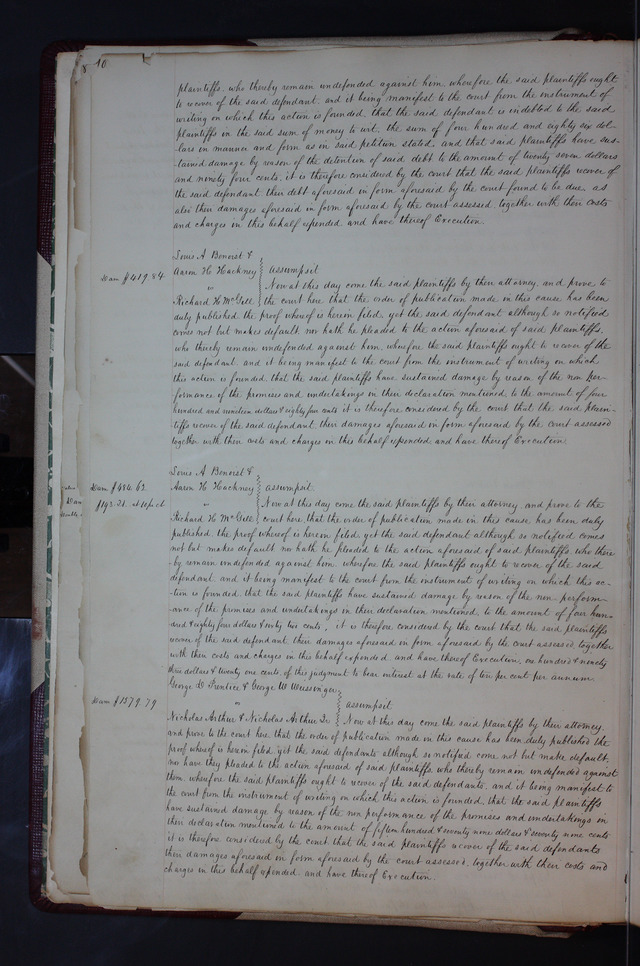 10
plaintiffs, who thereby remain undefended against him, wherefore the said plaintiffs ought
to recover of the said defendant. and it being manifest to the court from the instrument of
writing on which this action is founded, that the said defendant is indebted to the said
plaintiffs in the said sum of money to wit, the sum of four hundred and eighty six dol-
-lars in manner and form as in said petition stated, and that said plaintiffs have sus-
-tained damage by reason of the detention of said debt to the amount of twenty seven dollars
and ninety four cents. it is therefore considered by the court that the said plaintiffs recover of
the said defendant their debt aforesaid in form aforesaid by the court found to be due, as
also their damages aforesaid in form aforesaid by the court assessed, together with their costs
and charges in this behalf expended, and have thereof Execution.
Louis A Benoist &
Aaron H Hackney } assumpsit
Dam $419.84. vs Now at this day come the said plaintiffs by their attorney, and prove to
Richard H McGill the court here that the order of publication made in this cause has been
duly published, the proof whereof is herein filed, yet the said defendant although so notified
comes not but makes default, nor hath he pleaded to the action aforesaid of said plaintiffs,
who thereby remain undefended against him, wherefore the said plaintiffs ought to recover of the
said defendant. and it being manifest to the court from the instrument of writing on which
this action is founded, that the said plaintiffs have sustained damage by reason of the non per-
-formance of the promises and undertakings in their declaration mentioned, to the amount of four
hundred and nineteen dollars & eighty four cents it is therefore considered by the court that the said plain-
-tiffs recover of the said defendant, their damages aforesaid in form aforesaid by the court assessed
together with their costs and charges in this behalf expended and have thereof Execution.
Louis A Benoist &
Dam $484.62. Aaron H Hackney } assumpsit.
$193.21. at 10 pr ct vs Now at this day come the said plaintiffs by their attorney, and prove to the
Richard H McGill court here, that the order of publication made in this cause has been duly
published, the proof whereof is herein filed, yet the said defendant although so notified comes
not but makes default nor hath he pleaded to the action aforesaid of said plaintiffs, who there-
-by remain undefended against him, wherefore the said plaintiffs ought to recover of the said
defendant. and it being manifest to the court from the instrument of writing on which this ac-
-tion is founded, that the said plaintiffs have sustained damage by reason of the non perform-
-ance of the promises and undertakings in their declaration mentioned, to the amount of four hun-
-dred & eighty four dollars & sixty two cents, it is therefore considered by the court that the said plaintiffs
recover of the said defendant their damages aforesaid in form aforesaid by the court assessed, together
with their costs and charges in this behalf expended, and have thereof Execution, one hundred & ninety
three dollars & twenty one cents of this judgment to bear interest at the rate of ten per cent per annum.
George D Prentice & George W Weissenger
Dam $1579.79 vs } assumpsit
Nicholas Arthur & Nicholas Arthur Jr Now at this day come the said plaintiffs by their attorney,
and prove to the court here, that the order of publication made in this cause has been duly published the
proof whereof is herein filed, yet the said defendants although so notified come not but make default,
nor have they pleaded to the action aforesaid of said plaintiffs, who thereby remain undefended against
them, wherefore the said plaintiffs ought to recover of the said defendants, and it being manifest to
the court from the instrument of writing on which this action is founded, that the said plaintiffs
have sustained damage by reason of the non performance of the promises and undertakings in
their declaration mentioned to the amount of fifteen hundred & seventy nine dollars & seventy nine cents
it is therefore considered by the court, that the said plaintiffs recover of the said defendants
their damages aforesaid in form aforesaid by the court assessed, together with their costs and
charges in this behalf expended, and have thereof Execution.